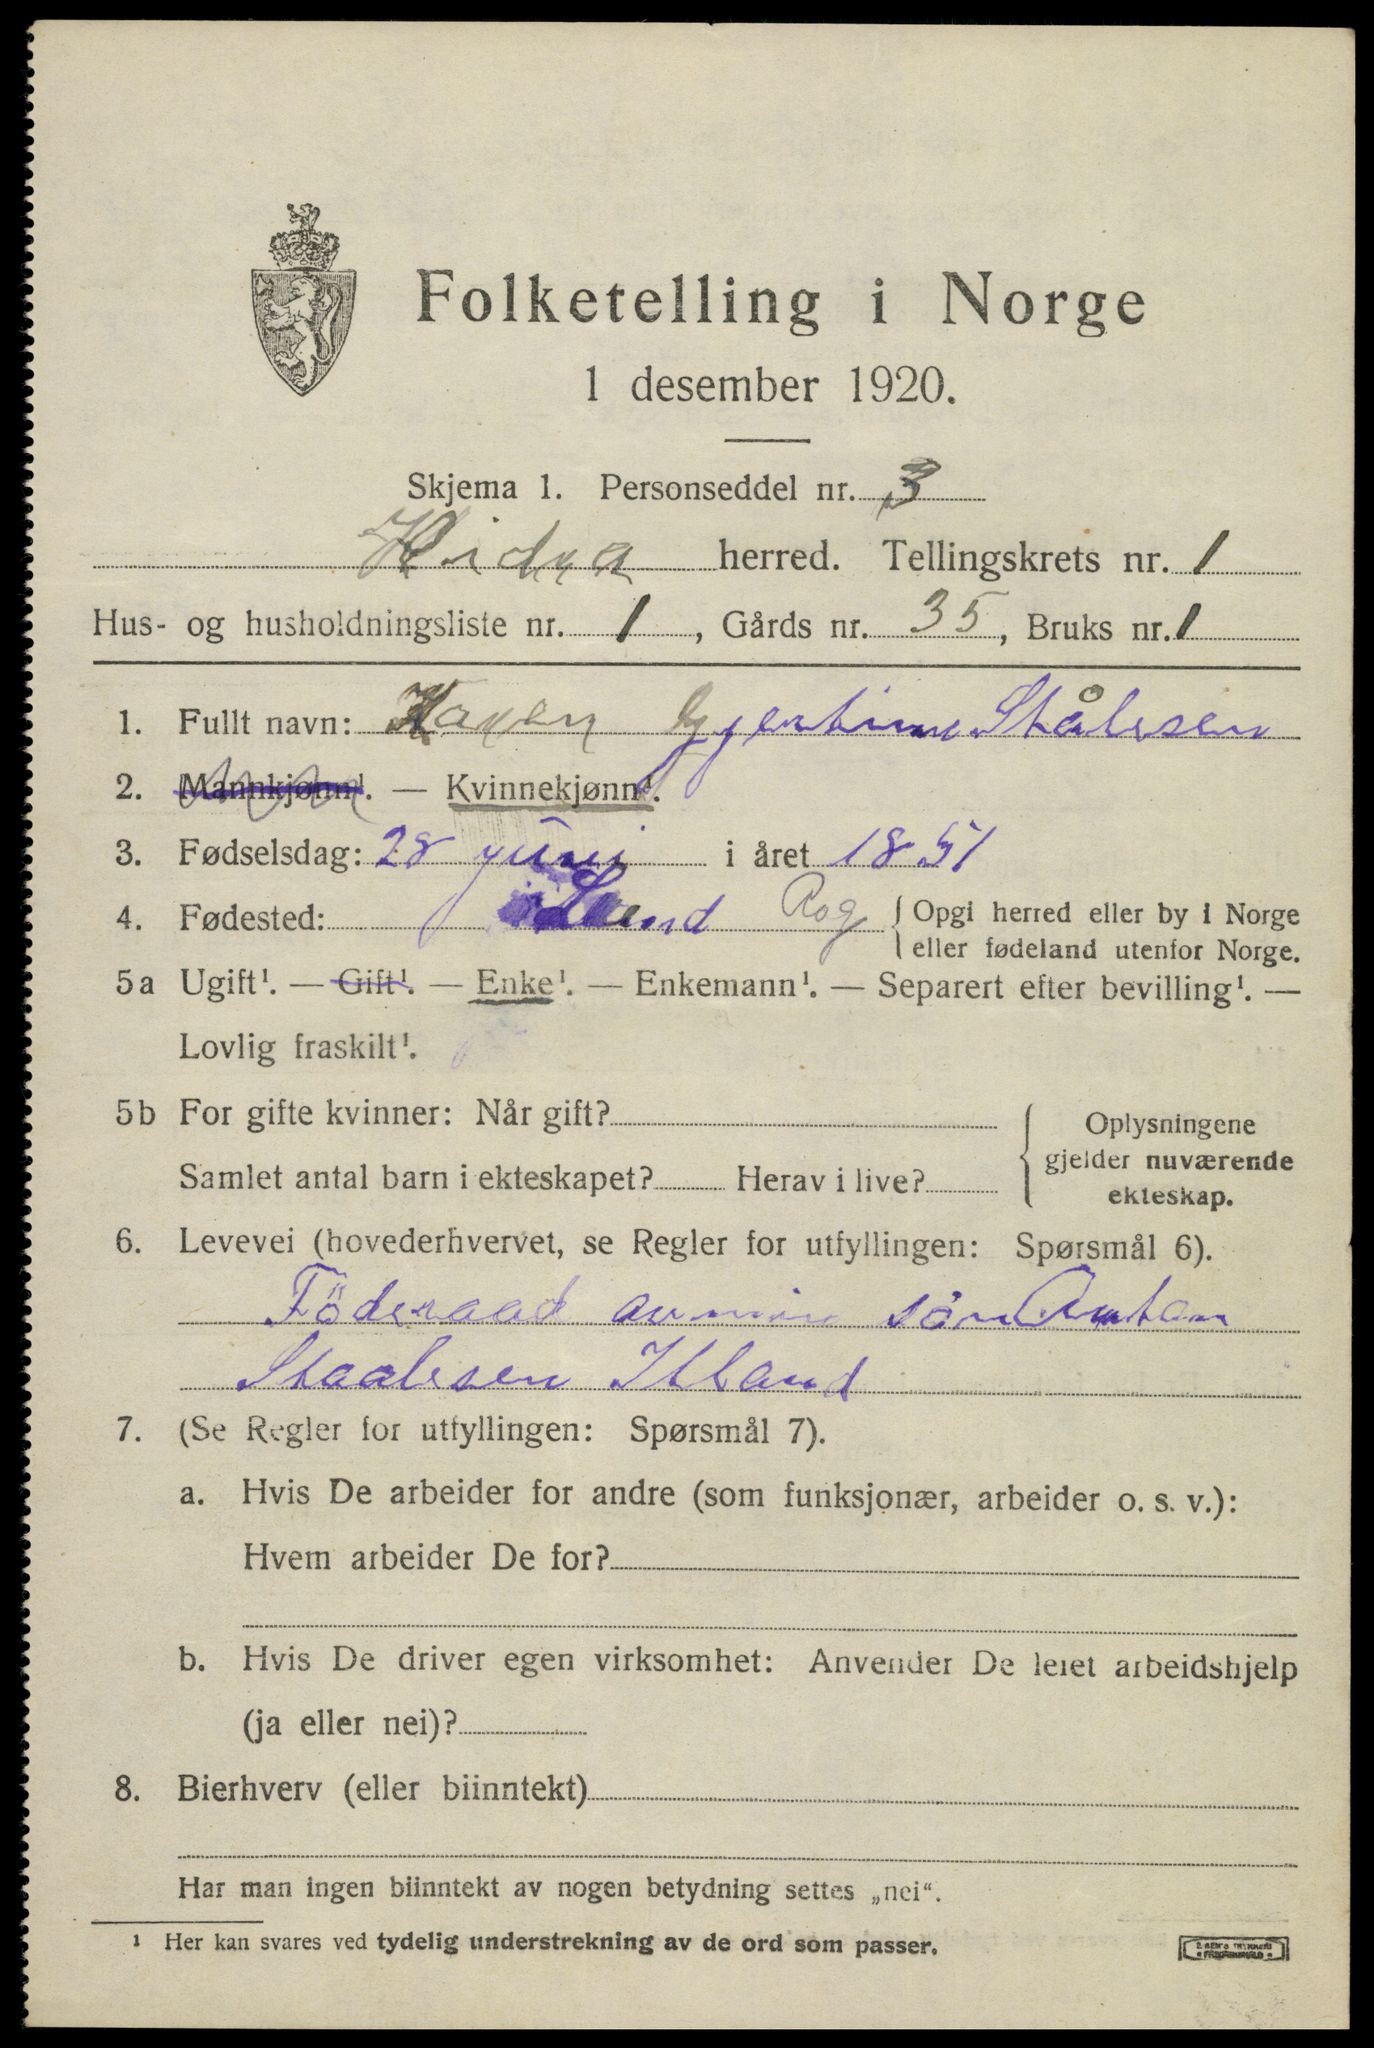 Folketelling i Norge
1 desember 1920.
Skjema 1. Personseddel nr. 3
Hidra herred. Tellingskrets nr. 1
Hus- og husholdningsliste nr. 1, Gårds nr. 35, Bruks nr. 1
1. Fullt navn: Karen Gjertine Stålesen
2. Mannkjønn¹. — Kvinnekjønn¹.
3. Fødselsdag: 28 juni i året 1851
4. Fødested: Lund Rog { Opgi herred eller by i Norge
eller fødeland utenfor Norge.
5a Ugift¹. — Gift¹. — Enke¹. — Enkemann¹. — Separert efter bevilling¹. —
Lovlig fraskilt¹.
5b For gifte kvinner: Når gift?
Samlet antal barn i ekteskapet? Herav i live?
Oplysningene
gjelder nuværende
ekteskap.
6. Levevei (hovederhvervet, se Regler for utfyllingen: Spørsmål 6).
Föderaad av min sön Anton
Staalesen Itland
7. (Se Regler for utfyllingen: Spørsmål 7).
a. Hvis De arbeider for andre (som funksjonær, arbeider o. s. v.):
Hvem arbeider De for?
b. Hvis De driver egen virksomhet: Anvender De leiet arbeidshjelp
(ja eller nei)?
8. Bierhverv (eller biinntekt)
Har man ingen biinntekt av nogen betydning settes „nei“.
¹ Her kan svares ved tydelig understrekning av de ord som passer.